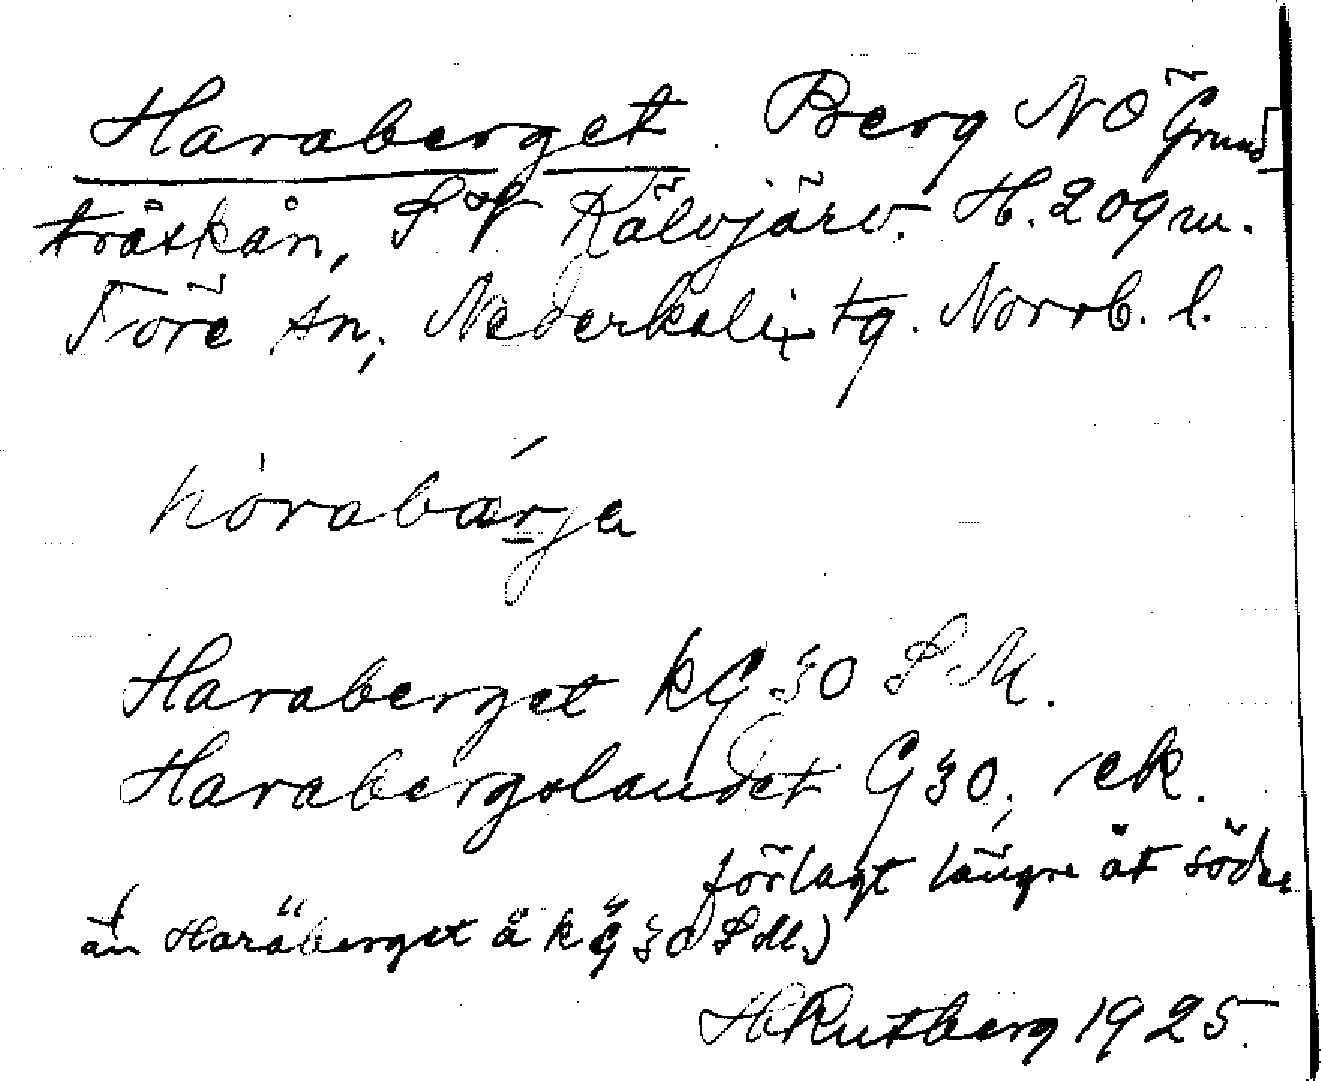 Haraberget. Berg NÖ Grund
träskån, SV Kälvjärv. H. 209 m.
Töre sn, Nederkalix tg. Norrb. l.
hòrabǽrja
Haraberget kG 30 SM.
Harabergslandet G 30, ek.
förlagt längre åt söder
än Haraberget å kG 30 SM.)
H Rutberg 1925.